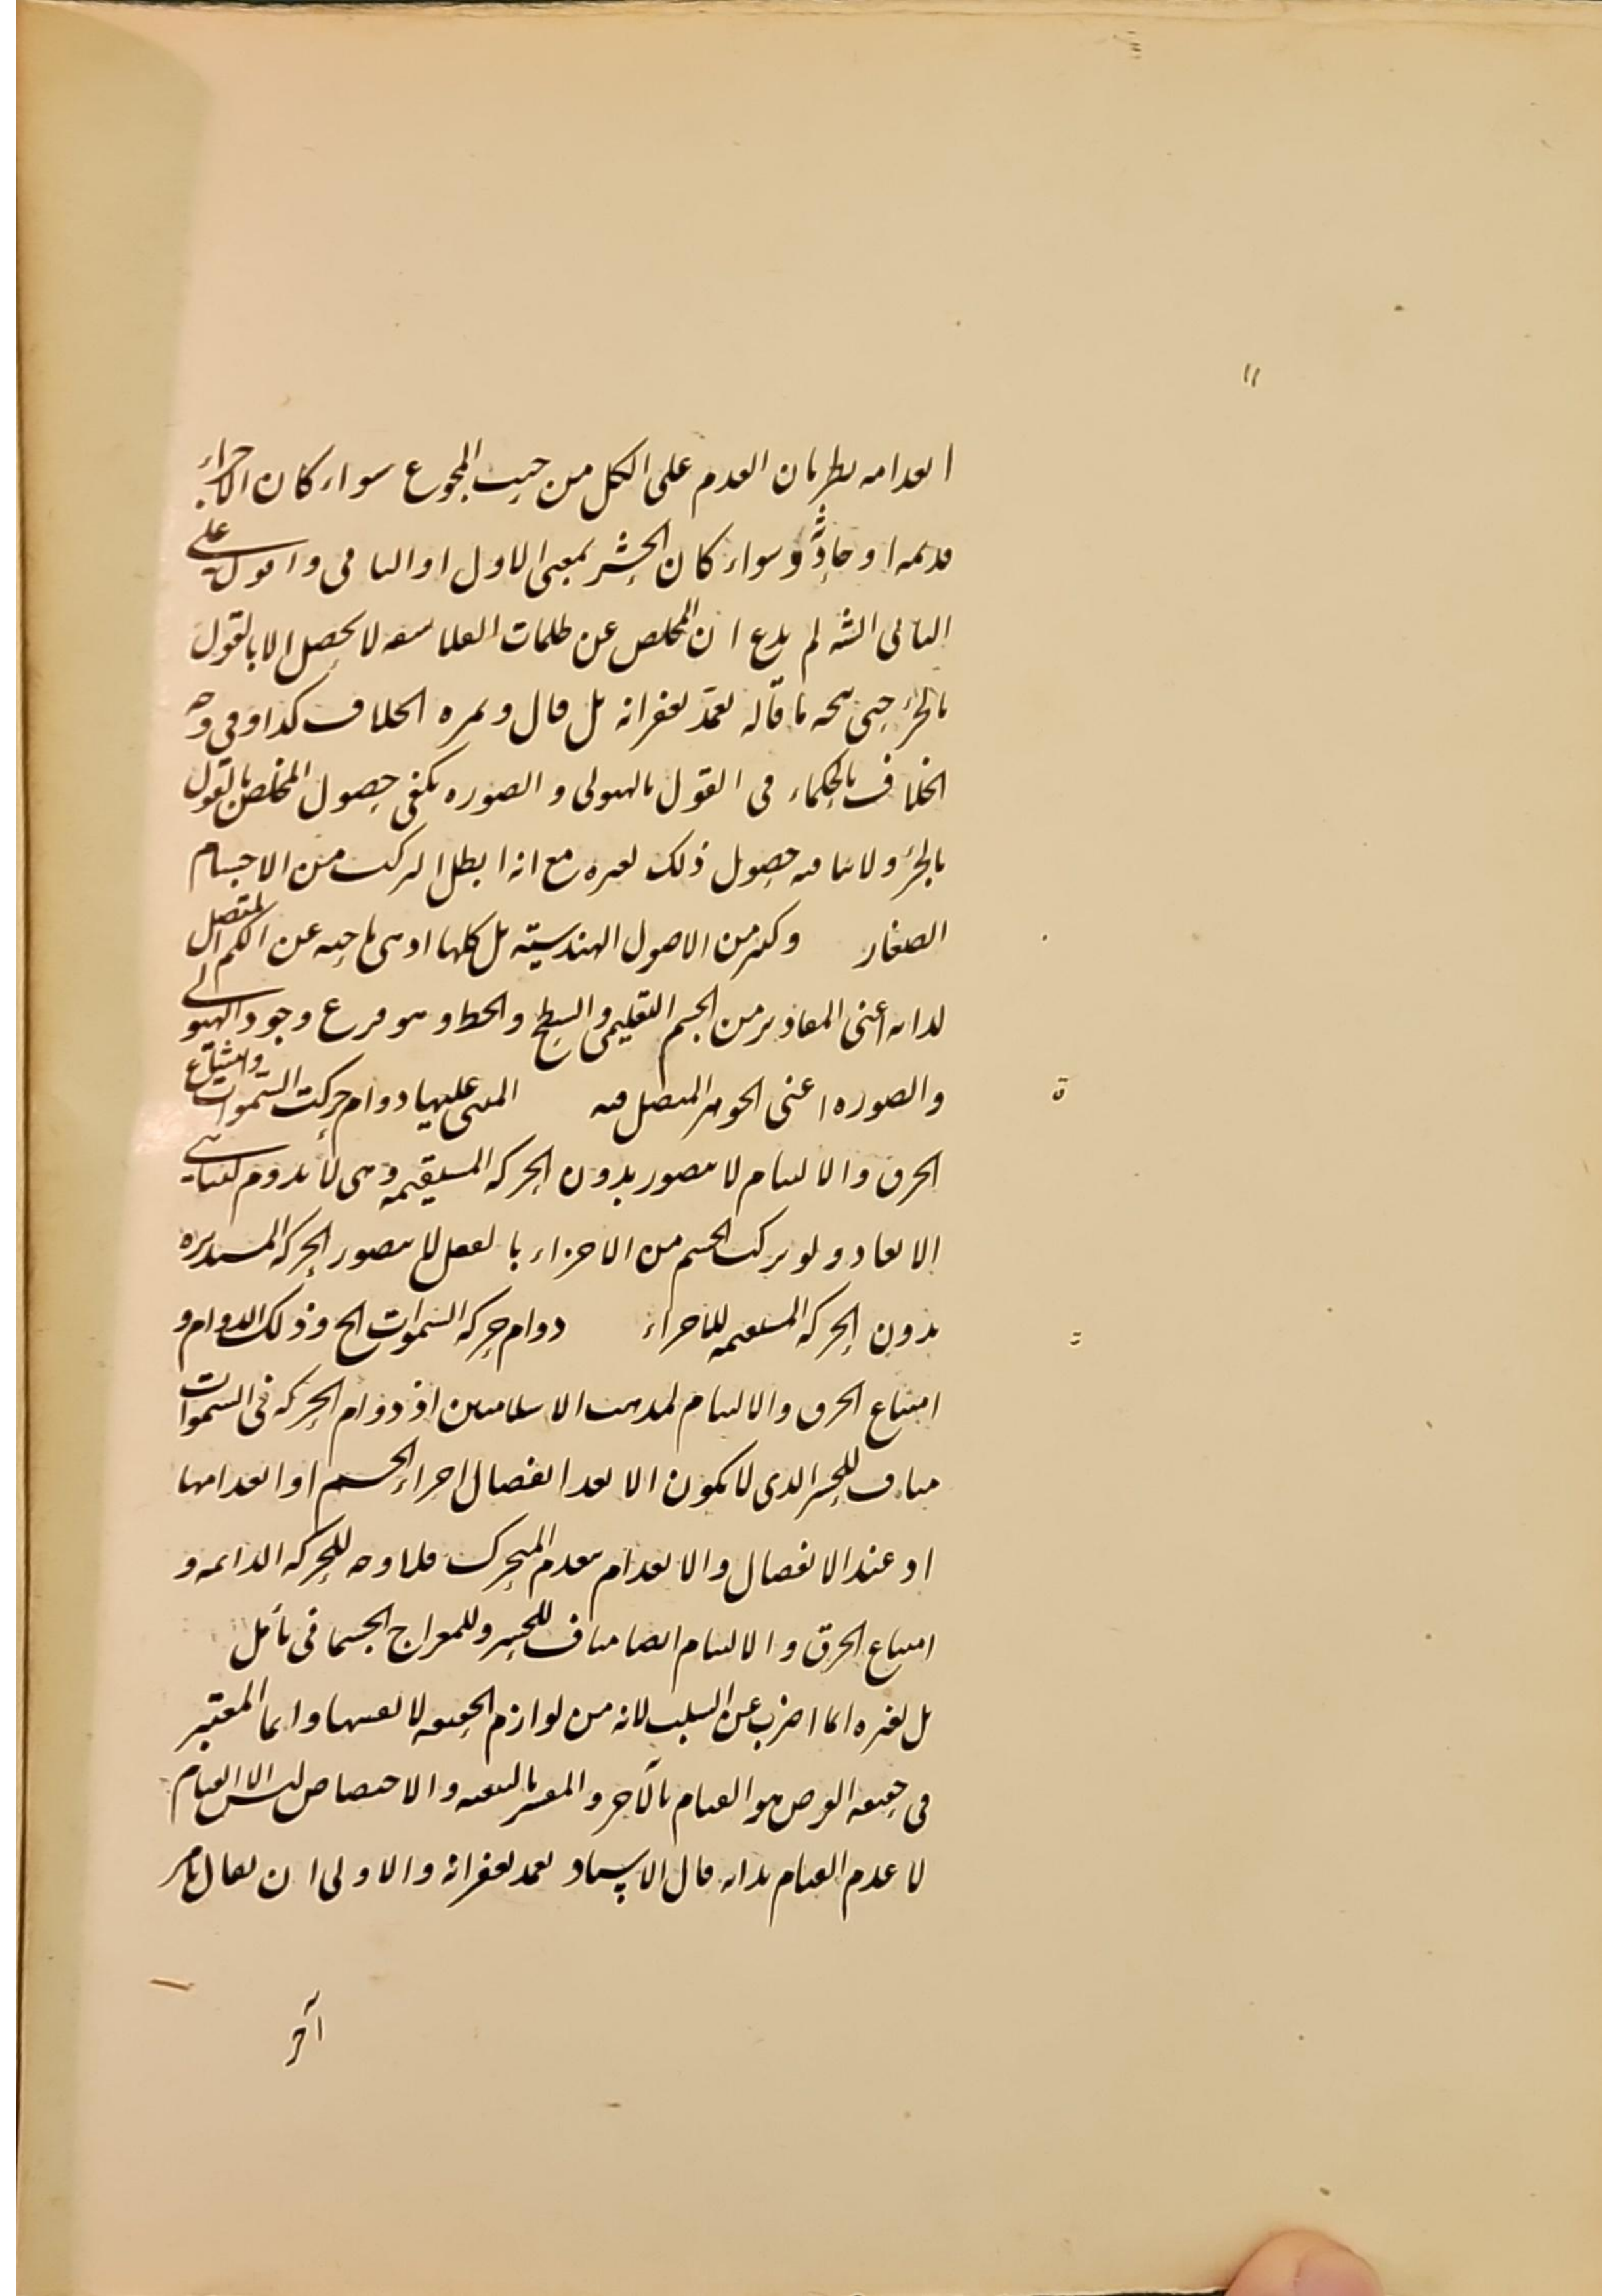 انعدامه بطريان العدم على الكل من حيث المجموع سواء كان الاجزاء
قديمة او حادثة وسواء كان الحشر بمعنى الاول او الثانى واقول على
الثانى الشه لم يدع ان المخلص عن ظلمات الفلاسفة لا يحصل الا بالقول
بالجزء حتى يتجه ما قاله تغمد بغفرانه بل قال وثمرة الخلاف كذا وفى وجه
الخلاف بالحكماء فى القول بالهيولى والصورة يكفى حصول المخلص بالقول
بالجزء ولا ينافيه حصول ذلك لغيره مع انه ابطل التركب من الاجسام
الصغار وكثير من الاصول الهندسية بل كلها اذ هى باحثة عن الكم المتصل
لذاته اعنى المقادير من الجسم التعليمى والسطح والخط وهو فرع وجود الهيولى
والصورة اعنى الجوهر المتصل فيه المبنى عليها دوام حركت السموات وامتناع
الخرق والالتيام لا يتصور بدون الحركة المستقيمة وهى لا تدوم لتناهى
الابعاد ولو تركب الجسم من الاجزاء بالفعل لا يتصور الحركة المستديرة
بدون الحركة المستقيمة للاجزاء دوام حركة السموات الخ وذلك الدوام و
امتناع الخرق والالتيام لمذهب الاسلاميين اذ دوام الحركة فى السموات
مناف للحشر الذى لا يكون الا بعد انفصال اجزاء الجسم او انعدامها
اذ عند الانفصال والانعدام ينعدم المتحرك فلا وجه للحركة الدائمة و
امتناع الخرق والالتيام ايضا مناف للحشر وللمعراج الجسمانى تأمل
بل لغيره انما اضرب عن السلب لانه من لوازم الحقيقة لا نفسها وانما المعتبر
فى حقيقة العرض هو القيام بالآخر والمفسر بالتبعية والاختصاص ليس الا القيام
لا عدم القيام بذاته قال الاستاد تغمد بغفرانه والاولى ان يقال بامر
آخر